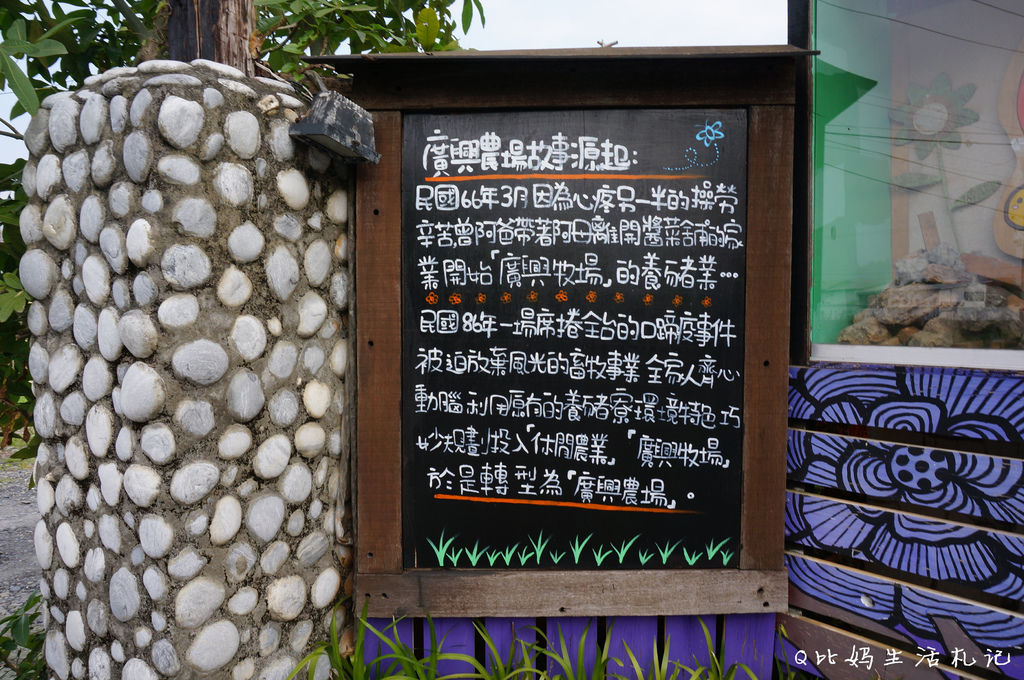 廣興農場故事源起:
民國66年3月因為心疼另一半的操勞
辛苦,曾阿爸帶著阿母離開醬菜舖的家
業開始「廣興牧場」的養豬業…
民國86年一場席捲全台的口蹄疫事件
被迫放棄風光的畜牧事業全家人齊心
動腦利用原有的養豬寮環境特色巧
妙規劃投入「休閒農業」「廣興牧場」
於是轉型為「廣興農場」。
Q比媽生活札記